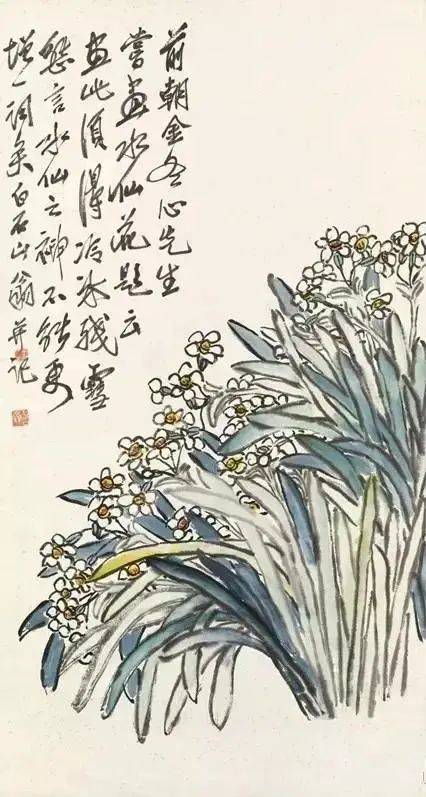 前朝金冬心先生
嘗畫水仙花題云
畫此須得冷冰殘雪
態言水仙之神不能更
增一詞矣白石山翁并記